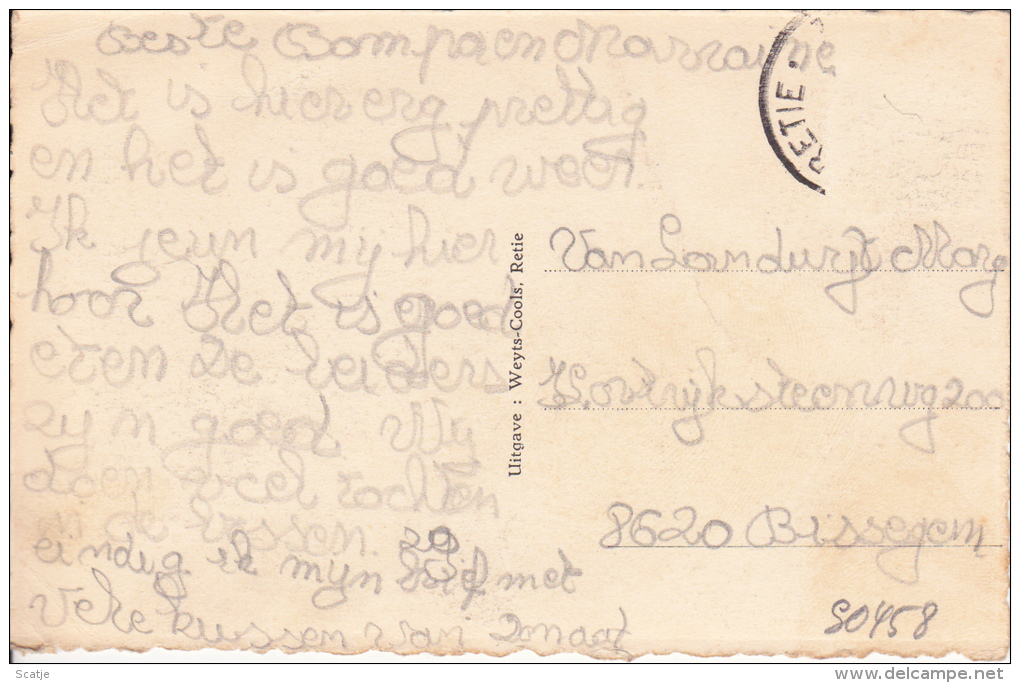 Beste Bompa en Marraine
Het is hier erg prettig
en het is goed weer.
Ik jeun my hier
hoor Het is goed
eten De leiders
zyn goed Wy
doen veel tochten
en de bossen. zo
eindig ik mijn brief met
Vele kussen van
RETIE
Uitgave : Weyts-Cools, Retie
Van Landuyt Marg
Kortrijksteenweg 200
8620 Bissegem
S0458
Scatje
delcampe.net